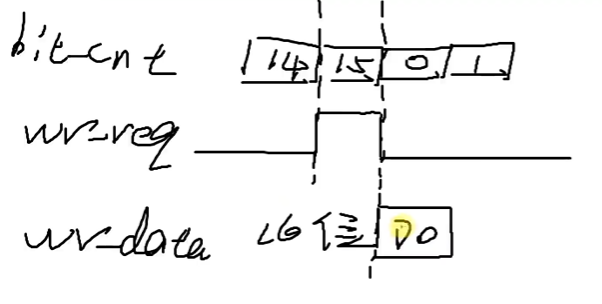 bit-cnt 14 15 0 1
wr-req
wr-data 16位 D0